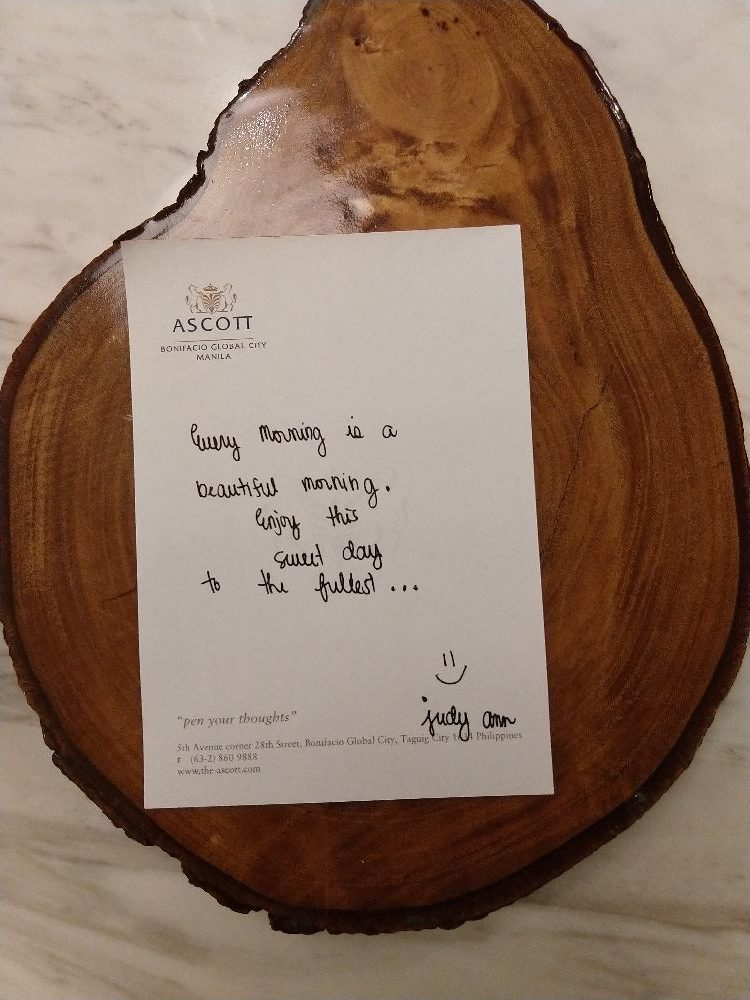 ASCOTT
BONIFACIO GLOBAL CITY
MANILA
Every Morning is a
beautiful morning.
Enjoy this
sweet day
to the fullest...
judy ann
"pen your thoughts"
5th Avenue corner 28th Street, Bonifacio Global City, Taguig City 1634 Philippines
t (63-2) 860 9888
www.the-ascott.com